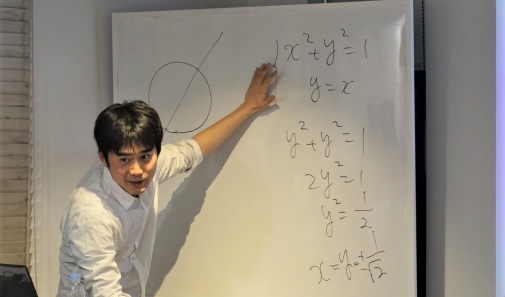 x²+y²=1
y=x
y²+y²=1
2y²=1
y²=1/2
x=y=±1/√2